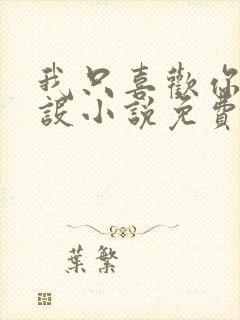 我只喜歡你
設小說免費
葉繁